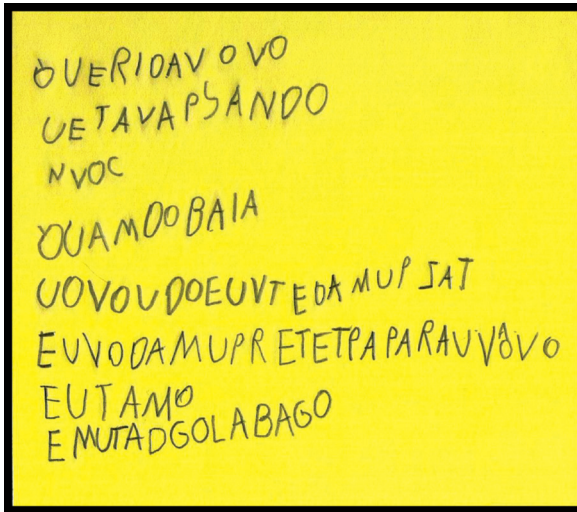 QUERIDAVOVO
UETAVAPSANDO
NVOC
QUAMDOBAIA
UOVOUDOEUVTEDAMUPSAT
EUVODAMUPRETETPAPARAUVÂVO
EUTAMO
EMUTADGOLABAGO